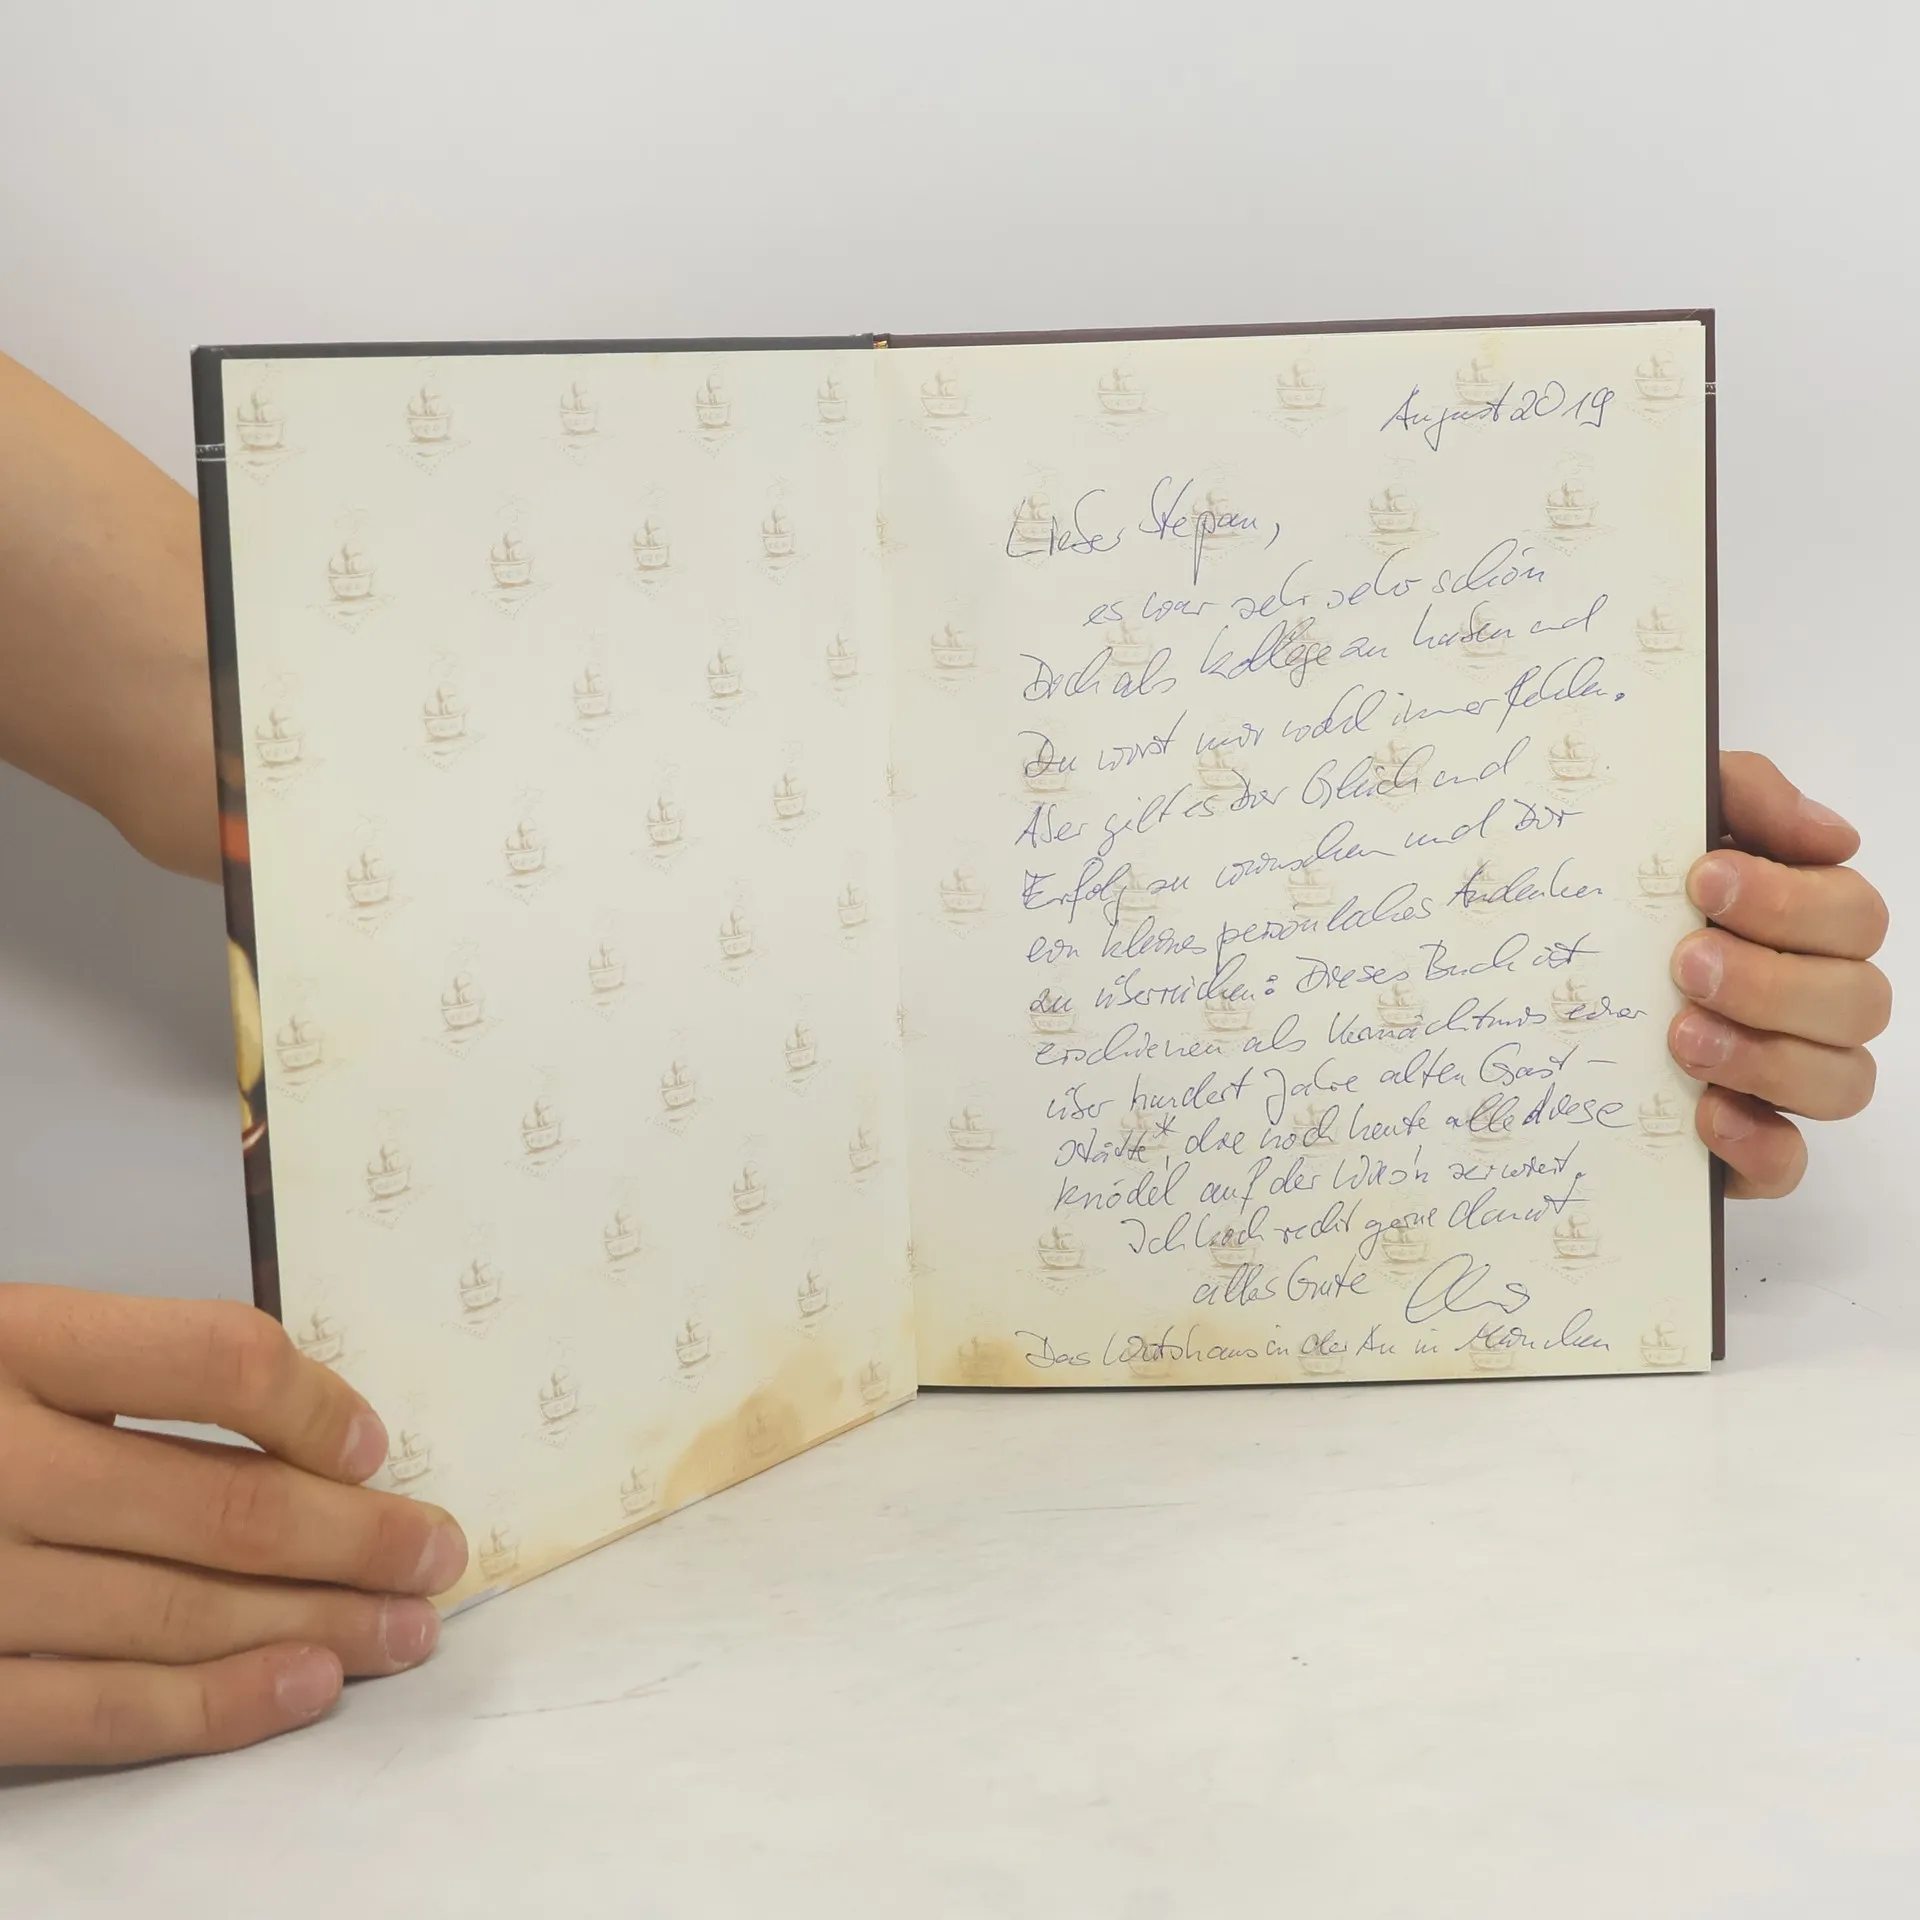 August 2019
Lieber Stepan,
es war sehr sehr schön
Dich als Kollege zu haben und
Du wirst mir wohl immer fehlen.
Aber gilt es Dir Glück und
Erfolg zu wünschen und Dir
ein kleines persönliches Andenken
zu überreichen: Dieses Buch ist
erschienen als Vermächtnis einer
über hundert Jahre alten Gast-
stätte*, die noch heute alle diese
Knödel auf der Wies'n serviert.
Ich koch recht gerne damit
alles Gute
Das Wirtshaus in der Au in München